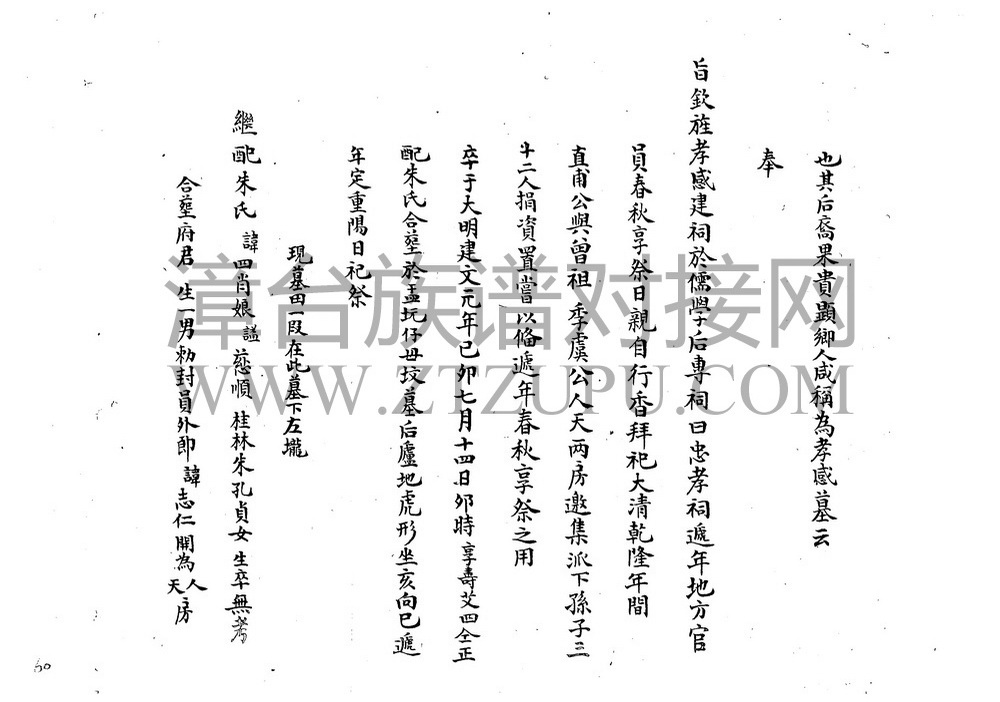 也其后裔果貴顯鄉人咸稱為孝感墓云
奉
旨欽旌孝感建祠於儒學后專祠曰忠孝祠遞年地方官
員春秋享祭日親自行香拜祀大清乾隆年間
直甫公與曾祖季虞公人天两房邀集派下孫子三
十二人捐資置嘗以俻遞年春秋享祭之用
卒于大明建文元年己卯七月十四日卯時享壽艾四仝正
配朱氏合塟於盂坑仔毌坟墓后廬地虎形坐亥向巳遞
年定重陽日祀祭
現墓田一段在此墓下左壠
繼配朱氏諱四肖娘謚慈順桂林朱孔貞女生卒無考
合塟府君生一男勑封員外郎諱志仁開為人天房
漳台族谱对接网
WWW.ZTZUPU.COM
60